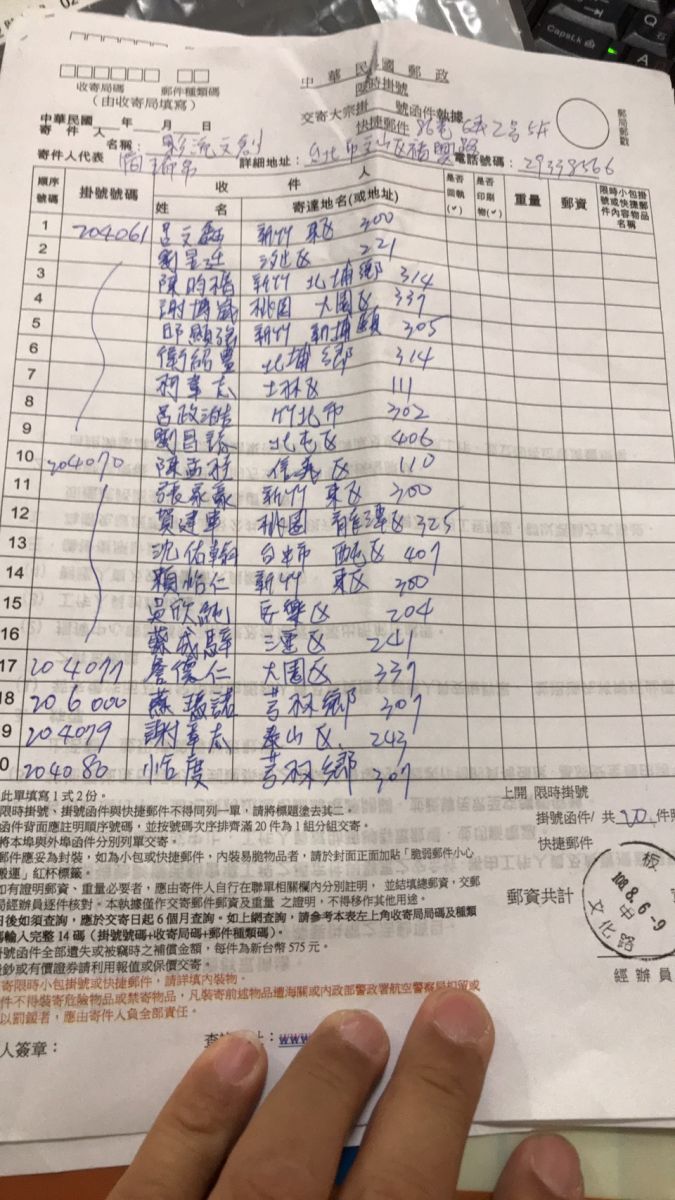 中華民國郵政
限時掛號
交寄大宗掛 號函件執據
快捷郵件
收寄局碼 郵件種類碼
(由收寄局填寫)
郵局郵戳
中華民國 年 月 日
寄件人 名稱:
寄件人代表 詳細地址: 電話號碼: 29338566
順序號碼 掛號號碼 收件人 是否回執(✓) 是否印刷物(✓) 重量 郵資 限時小包掛號或快捷郵件內容物品名稱
姓名 寄達地名(或地址)
1 204061 呂文鑫 新竹 東区 300
2 劉昱廷 汐止区 221
3 陳昀楷 新竹 北埔鄉 314
4 謝博崴 桃園 大園区 337
5 邱顯強 新竹 新埔鎮 305
6 衛紹豊 北埔鄉 314
7 柯韋志 士林区 111
8 呂政浩 竹北市 302
9 劉昌諺 北屯区 406
10 204070 陳孟程 信義区 110
11 張家豪 新竹 東区 300
12 賀建車 桃園 龍潭区 325
13 沈佑翰 台中市 西屯区 407
14 顏怡仁 新竹 東区 300
15 吳欣純 安樂区 204
16 蘇成 三重区 241
17 204077 詹德仁 大園区 337
18 206000 蘇 諾 芎林鄉 307
9 204079 謝韋志 泰山区 243
0 204080 小吉度 芎林鄉 307
此單填寫1式2份。
限時掛號、掛號函件與快捷郵件不得同列一單,請將標題塗去其二。
函件背面應註明順序號碼,並按號碼次序排齊滿20件為1組分組交寄。
將本埠與外埠函件分別列單交寄。
郵件應妥為封裝,如為小包或快捷郵件,內裝易脆物品者,請於封面正面加貼「脆弱郵件小心
搬運」紅杯標籤。
如有證明郵資、重量必要者,應由寄件人自行在聯單相關欄內分別註明,並結填總郵資,交郵
局經辦員逐件核對。本執據僅作交寄郵件郵資及重量之證明,不得移作其他用途。
日後如須查詢,應於交寄日起6個月查詢。如上網查詢,請參考本表左上角收寄局局碼及種類
郵輸入完整14碼(掛號號碼+收寄局碼+郵件種類碼)。
號函件全部遺失或被竊時之補償金額,每件為新台幣575元。
鈔或有價證券請利用報值或保價交寄。
寄限時小包掛號或快捷郵件,請詳填內裝物。
件不得裝寄危險物品或禁寄物品,凡裝寄前述物品遭海關或內政部警政署航空警察局扣留或
以罰鍰者,應由寄件人負全部責任。
上開 限時掛號
掛號函件/ 共20件
快捷郵件
郵資共計
板
108.8.6-9
文化路
經辦員
人簽章: